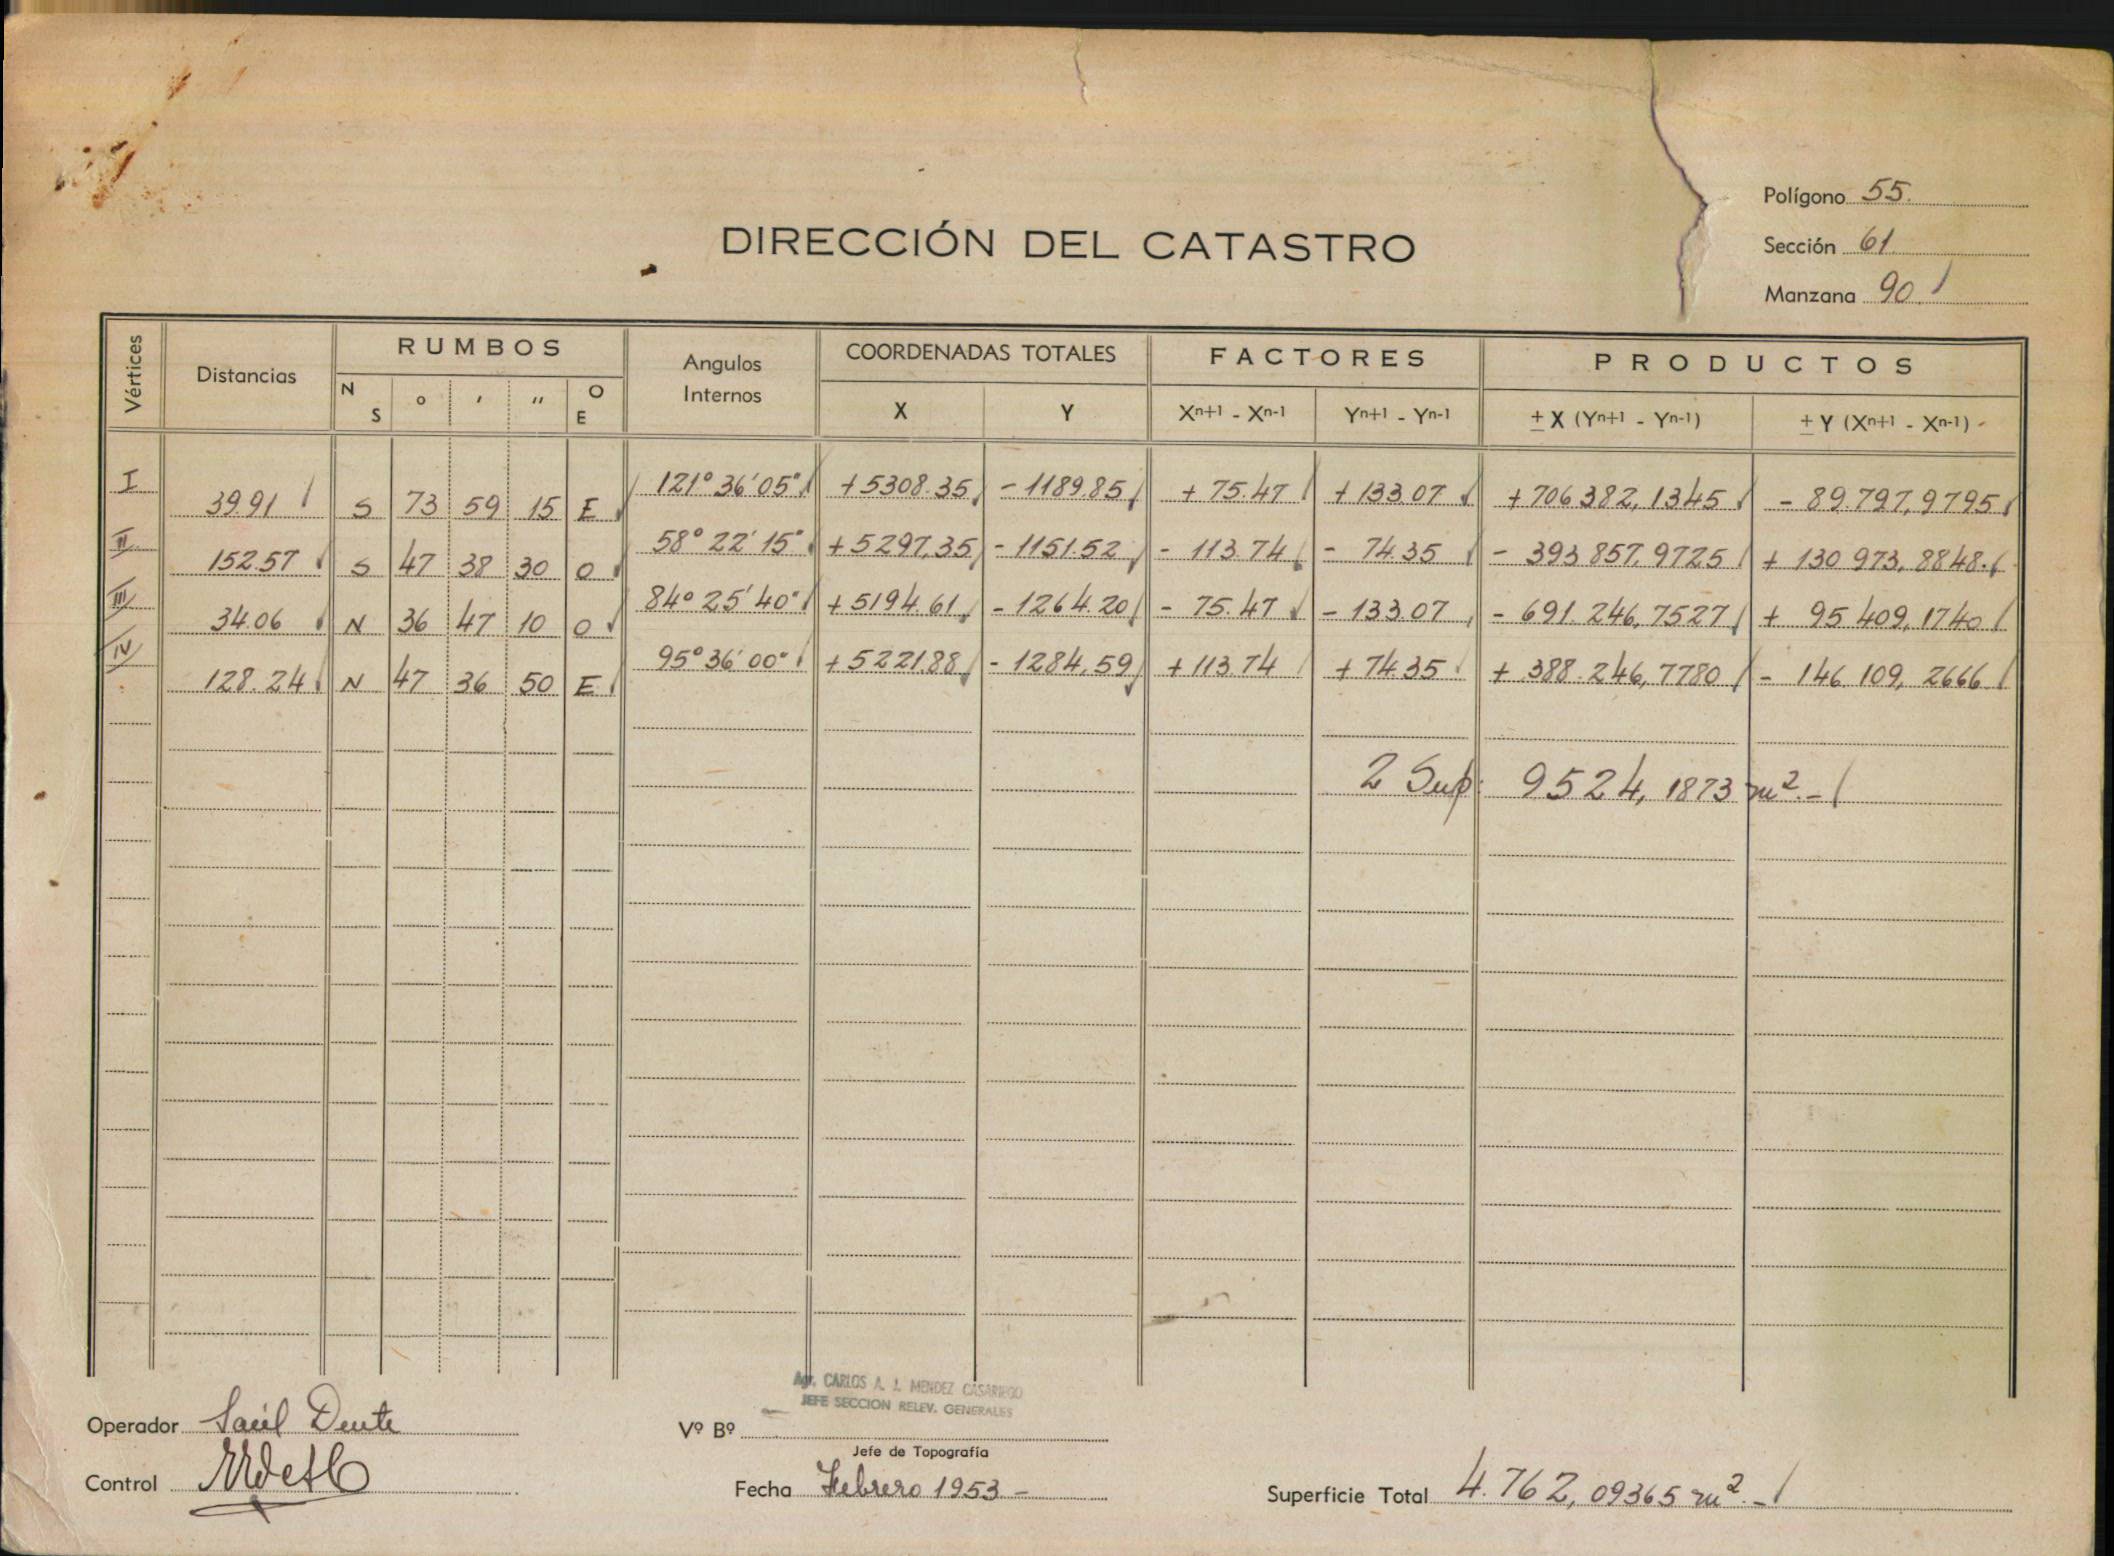 Polígono 55.
Sección 61
Manzana 90.
DIRECCIÓN DEL CATASTRO
Vértices Distancias RUMBOS Angulos Internos COORDENADAS TOTALES FACTORES PRODUCTOS
N S ° ' " O E X Y Xn+1 - Xn-1 Yn+1 - Yn-1 ± X (Yn+1 - Yn-1) ± Y (Xn+1 - Xn-1)
I 39.91 S 73 59 15 E 121° 36' 05" +5308.35 -1189.85 +75.47 +133.07 +706.382,1345 -89.797,9795
II 152.57 S 47 38 30 O 58° 22' 15" +5297.35 -1151.52 -113.74 -74.35 -393.857,9725 +130.973,8848
III 34.06 N 36 47 10 O 84° 25' 40" +5194.61 -1264.20 -75.47 -133.07 -691.246,7527 +95.409,1740
IV 128.24 N 47 36 50 E 95° 36' 00" +5221.88 -1284.59 +113.74 +74.35 +388.246,7780 -146.109,2666
2 Sup: 9524,1873 m². -
Agr. CARLOS A. J. MENDEZ CASARIEGO
JEFE SECCION RELEV. GENERALES
Operador Saúl Dente
Vº Bº
Jefe de Topografía
Control
Fecha Febrero 1953 -
Superficie Total 4.762,09365 m². -